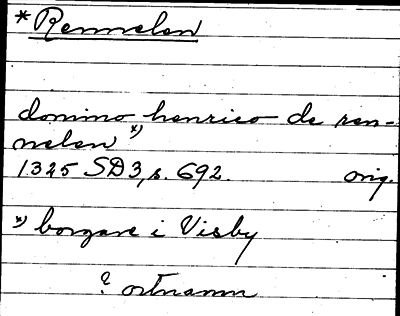 * Rennelen
domino henrico de ren-
nelen x)
1325 SD3, s. 692. orig.
x) borgare i Visby
? ortnamn